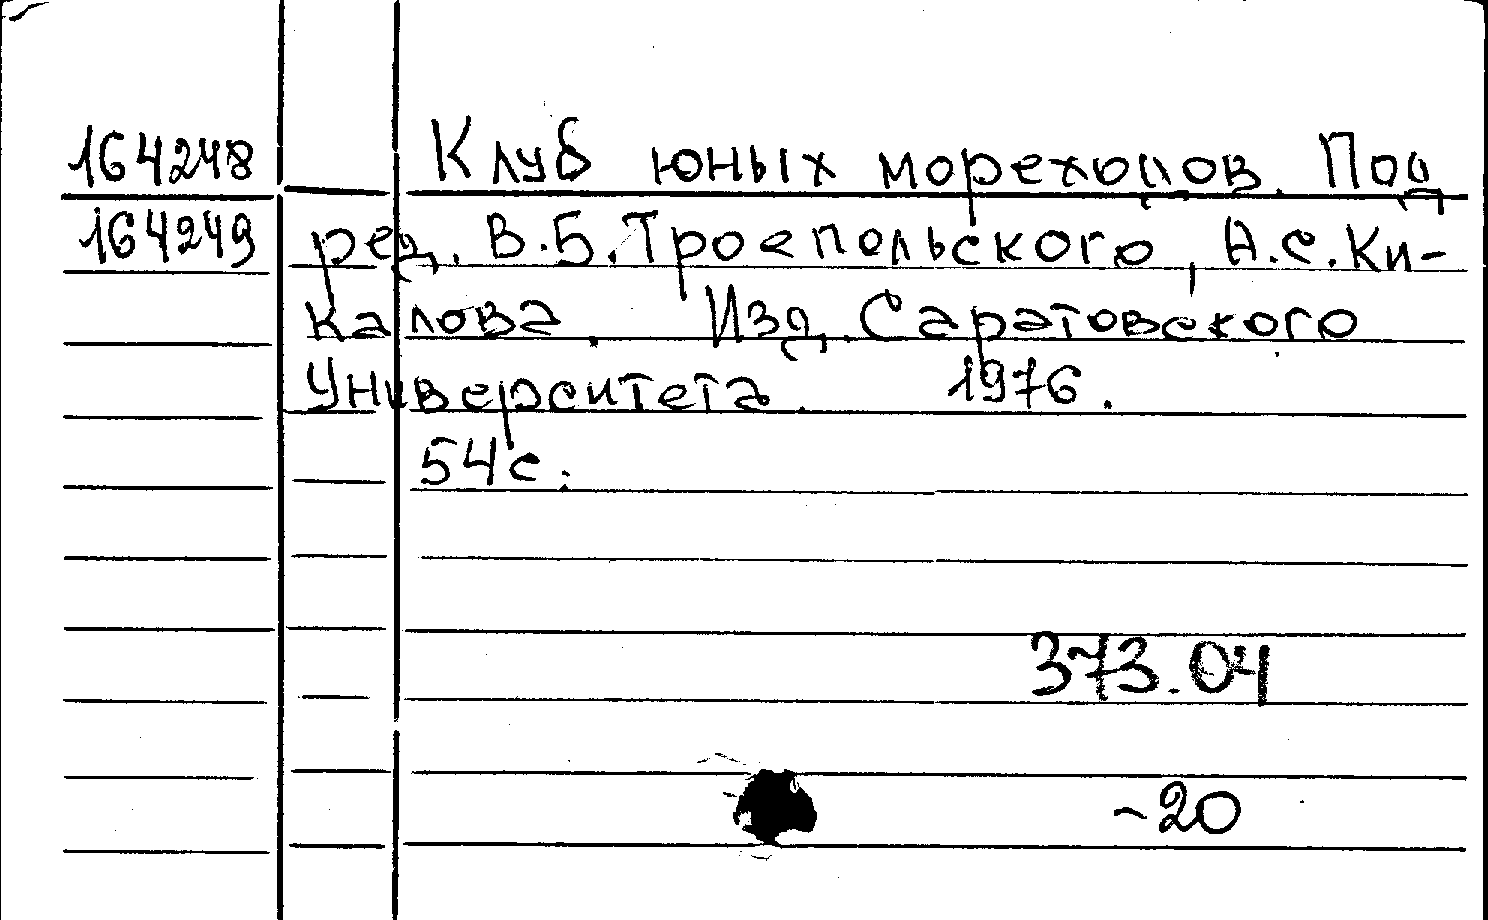 164248 Клуб юных мореходов. Под
164249 ред. В.Б.Троепольского, А.С.Ки-
калова. Изд. Саратовского
Университета. 1976.
54с.
373.04
-20